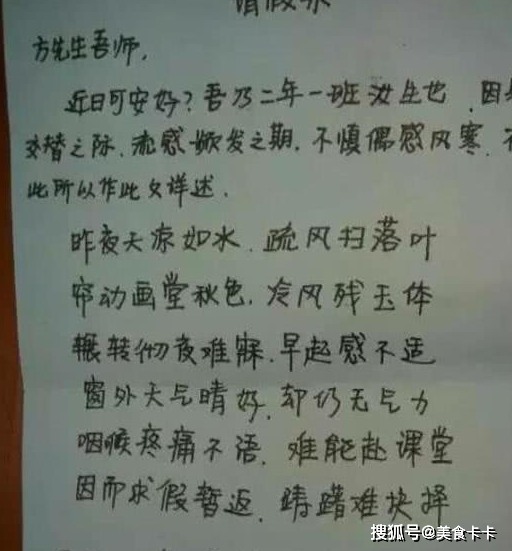 请假条
方先生吾师,
近日可安好?吾乃二年一班汝生也,因
交替之际,流感频发之期,不慎偶感风寒,
此所以作此文详述.
昨夜天凉如水,疏风扫落叶
帘动画堂秋色,冷风残玉体
辗转彻夜难寐,早起感不适
窗外天气晴好,却仍无气力
咽喉疼痛不语,难能赴课堂
因而求假暂返,踌躇难抉择
搜狐号@美食卡卡